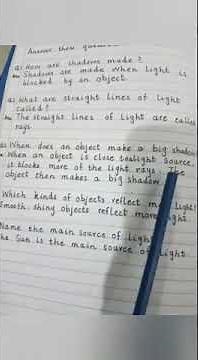 Answer these
Q1 How are shadows made?
Ans Shadows are made when light is
blocked by an object.
Q2 What are straight lines of light
called?
The straight lines of light are called
rays.
When does an object make a big shadow
When an object is close to light source,
it blocks more of the light rays. The
object then makes a big shadow.
Which kinds of objects reflect light
Smooth, shiny objects reflect more light.
Name the main source of light
The Sun is the main source of light